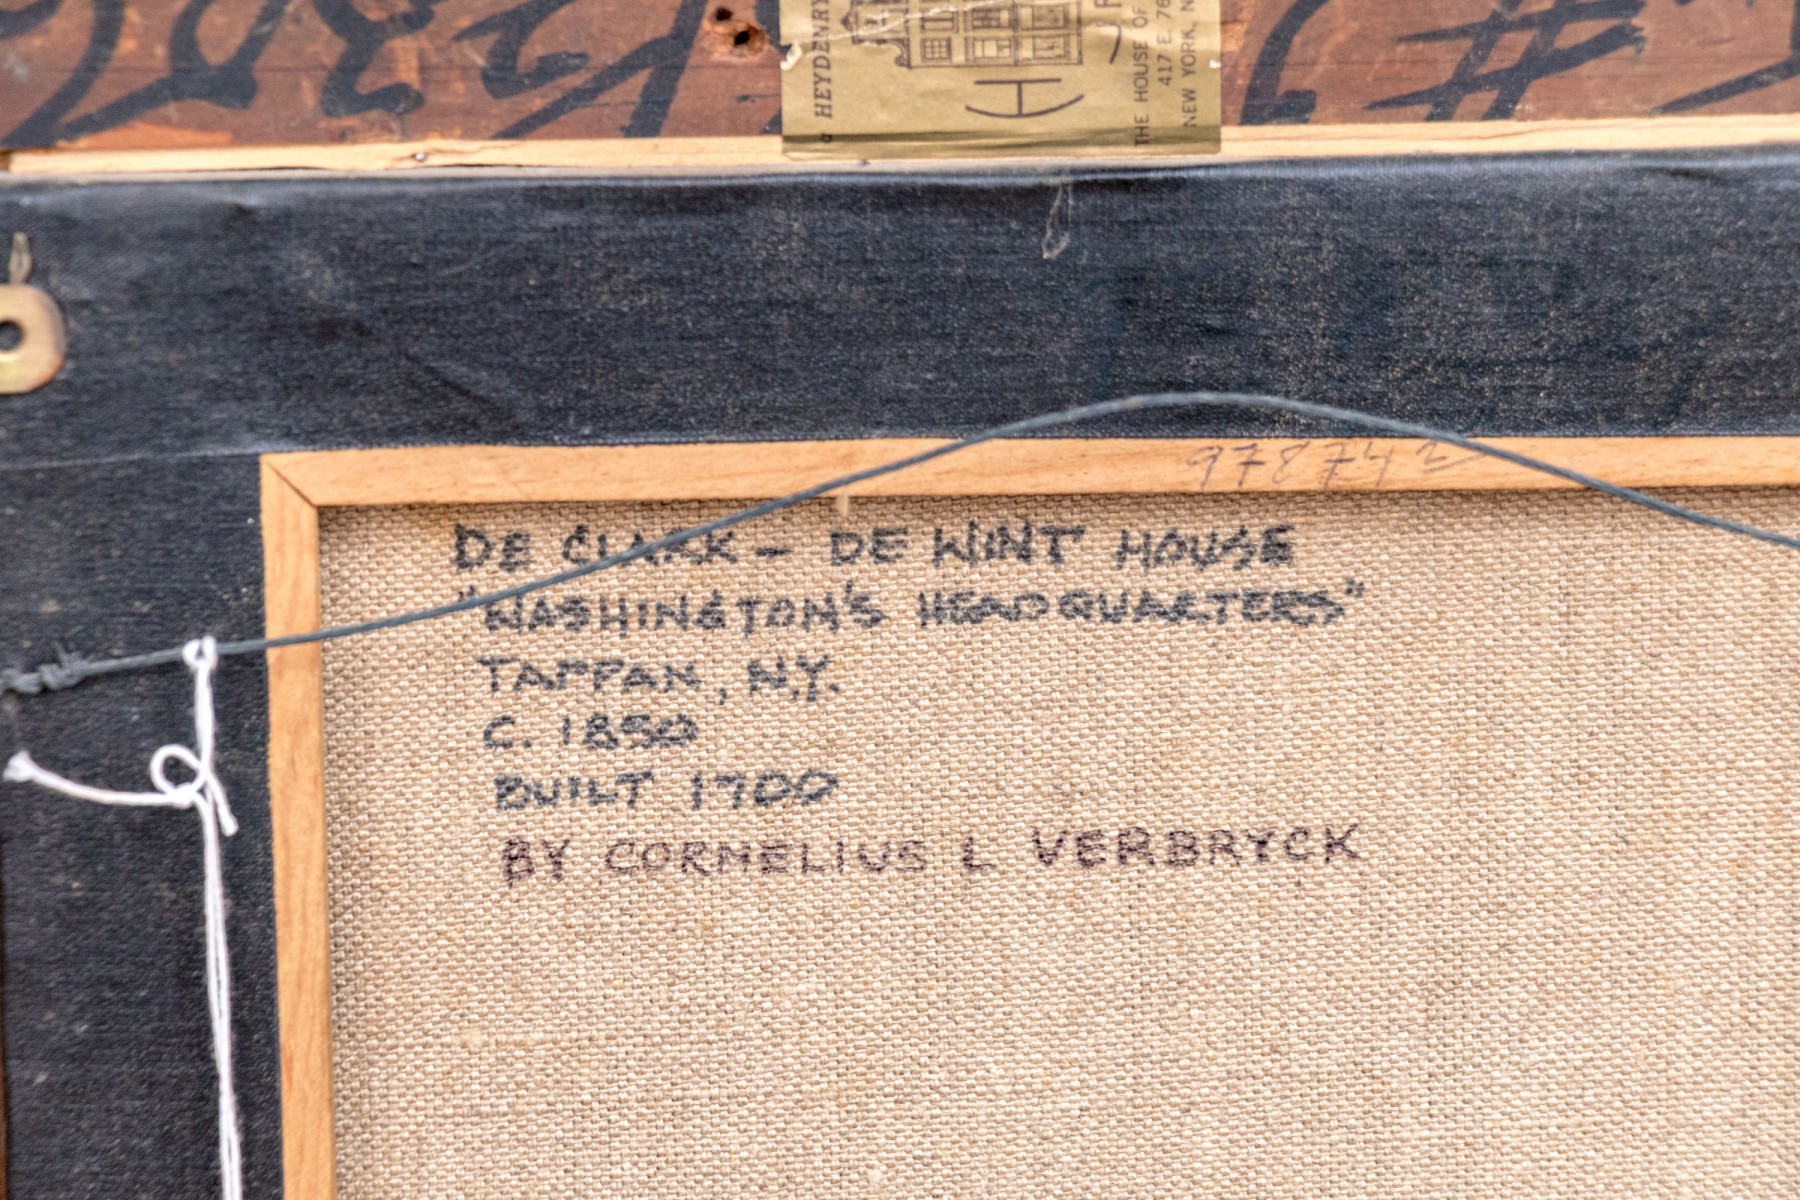 HEYDENRY
H
THE HOUSE OF
417 E. 76
NEW YORK, N
#
978742
DE CLARK - DE WINT HOUSE
"WASHINGTON'S HEADQUARTERS"
TAPPAN, N.Y.
C. 1850
BUILT 1700
BY CORNELIUS L VERBRYCK